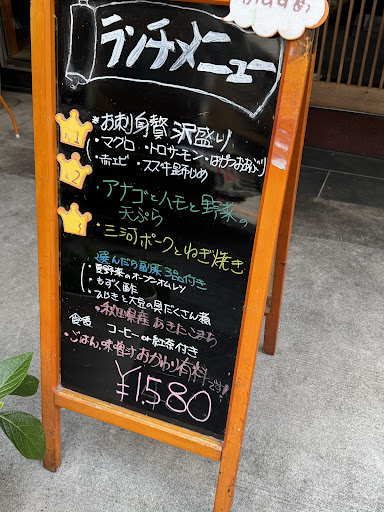 おすすめ
ランチメニュー
No.1 *お刺身贅沢盛り
・マグロ ・トロサーモン・はがつおあぶり
・赤エビ ・スズキ昆布じめ
No.2 ・アナゴとハモと野菜の
天ぷら
3 ・三河ポークとねぎ焼き
選んだら副菜3品付き
・夏野菜のオープンオムレツ
・もずく酢
・ひじきと大豆の具だくさん煮
・秋田県産あきたこまち
食後 コーヒーor紅茶付き
・ごはん、味噌汁おかわり有料です!
¥1,580